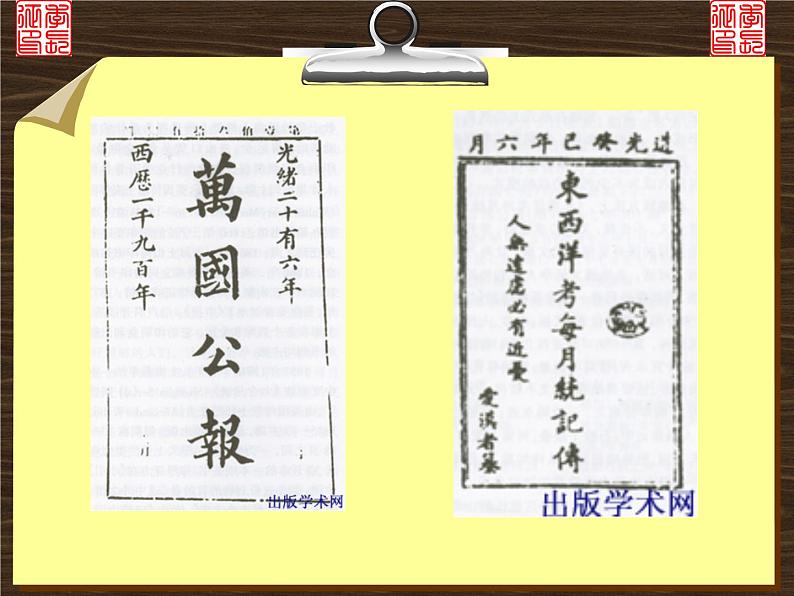 光緒二十有六年
萬國公報
西歷一千九百年
出版学术网
道光癸巳年六月
東西洋考每月統記傳
人無遠慮必有近憂
愛漢者纂
出版学术网